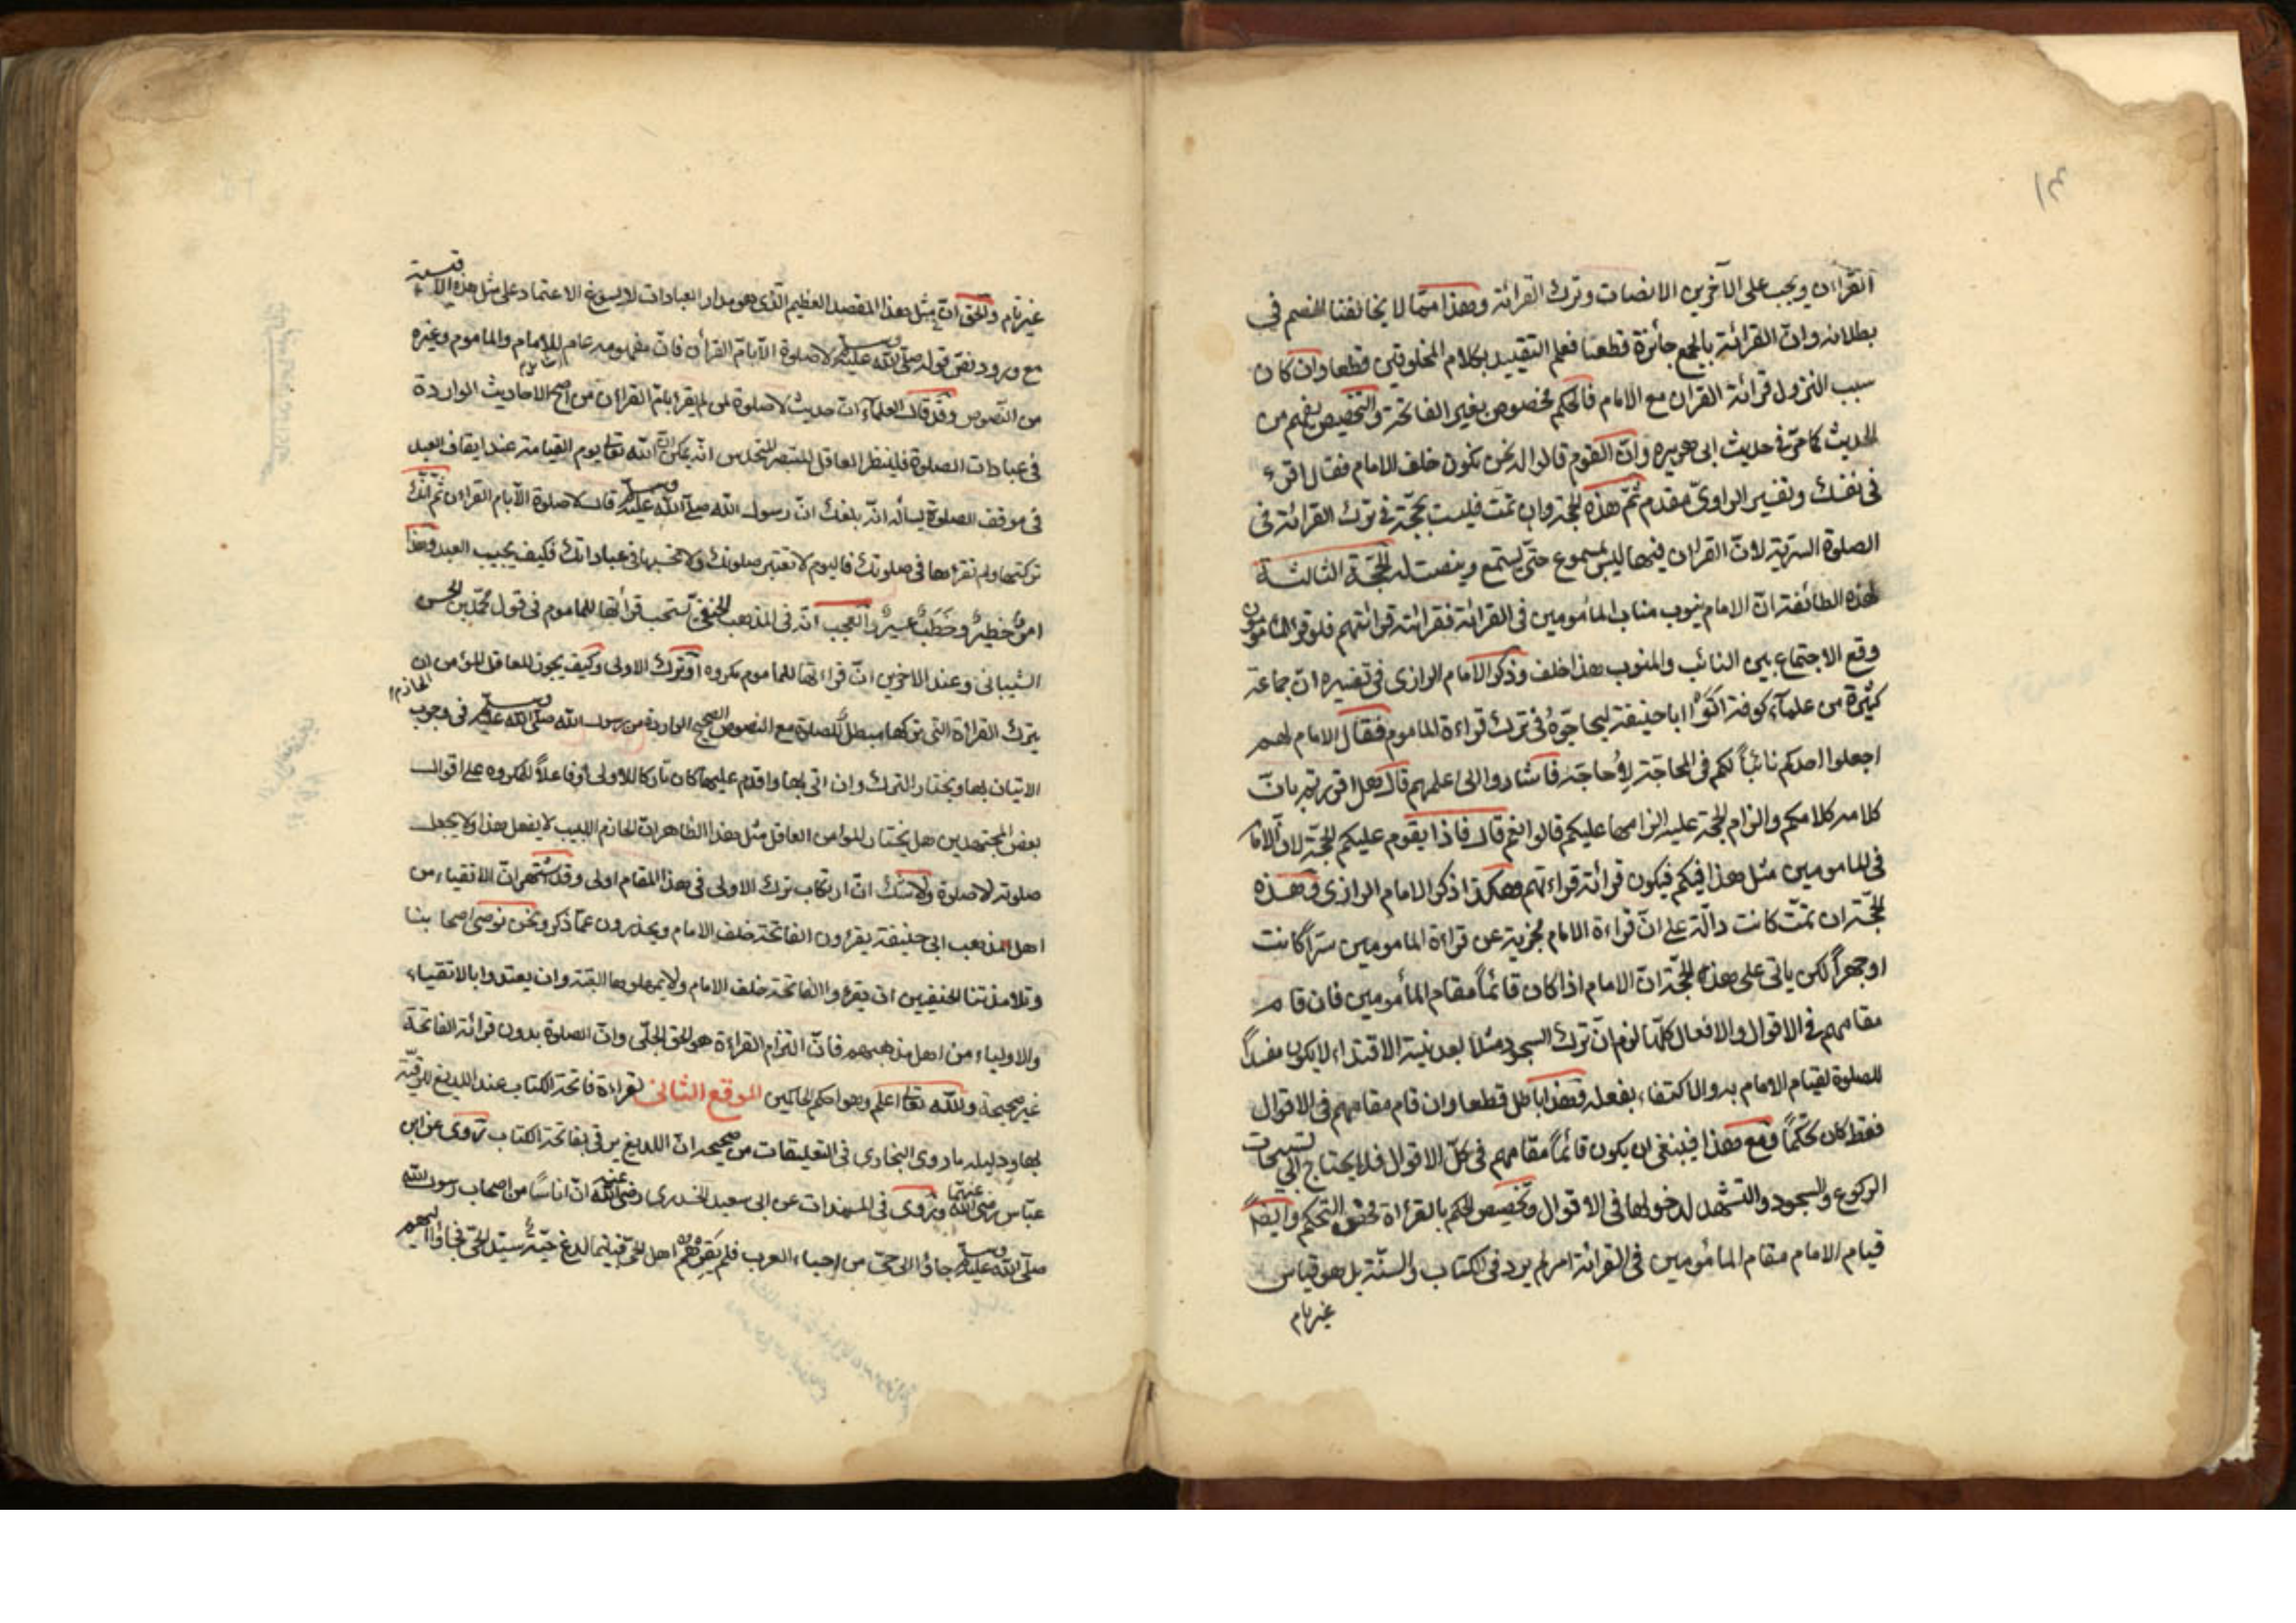 القراءن ويجب على الآخرين الانصات وترك القرائة وهذا ممّا لا يخالفنا الخصم في
بطلانه وانّ القرائة بالجمع جائزة قطعا فعلم التقييد بكلام المخلوقين قطعا وان كان
سبب النزول قرائة القران مع الامام فالحكم مخصوص بغير الفاتحة والتخصيص يفهم من
الحديث كما مرّ فى حديث ابى هريره وانّ القوم قالوا له نحن نكون خلف الامام فقال اقرء
فى نفسك وتفسير الراوى مقدم ثمّ هذه الحجة وان تمّت فليست بحجّة فى ترك القرائة فى
الصلوة السرّية لانّ القران فيها ليس بمسموع حتّى يستمع وينصت له الحجّة الثالثة
لهذه الطائفة انّ الامام ينوب مناب المأمومين فى القرائة فقرائته قرائتهم فلو قرا المأمومون
وقع الاجتماع بين النائب والمنوب هذا خلف وذكر الامام الرازى فى تفسيره انّ جماعة
كثيرة من علماء كوفة اتوا ابا حنيفة ليحاجّوهُ فى ترك قراءة الماموم فقال الامام لهم
اجعلوا احدكم نائباً لكم فى المحاجّة لأحاجّه فاشادوا الى اعلمهم قال هل اقررتم بانّ
كلامه كلامكم والزام الحجّة عليه الزامها عليكم قالوا نعم قال فاذا يقوم عليكم الحجّة لانّ الامام
فى المامومين مثل هذا فيكم فيكون قرائة قراءتهم وهكذا ذكر الامام الرازى وهذه
الحجّة ان تمّت كانت دالّة على انّ قراءة الامام مجزية عن قراءة المامومين سرّا كانت
او جهراً لكن ياتى على هذه الحجّة انّ الامام اذا كان قائماً مقام المأمومين فان قام
مقامهم فى الاقوال والافعال كلّها لزم انّ ترك السجود مثلاً بعد نيّة الاقتداء لا يكون مفسداً
للصلوة لقيام الامام به والاكتفاء بفعله وهذا باطل قطعا وان قام مقامهم فى الاقوال
فقط كان تحكّماً ومع هذا فينبغى ان يكون قائماً مقامهم فى كلّ الاقوال فلا يحتاج الى تسبيحات
الركوع والسجود والتشهّد لدخولها فى الاقوال وتخصيص الحكم بالقراءة محض التحكم وايضاً
قيام الامام مقام المأمومين فى القرائة امر لم يرد فى الكتاب والسنّة بل هو قياس
غير تام
غير تام والحقّ انّ مثل هذا المقصد العظيم الّذى هو مدار العبادات لا يسوغ الاعتماد على مثل هذه الاقيسة
مع ورود نصّ قوله صلّى الله عليه وسلم لا صلوة الّا بامّ القرأن فانّ مفهومه عام للامام والماموم وغيره
من النّصوص وقد قال العلماء انّ حديث لا صلوة لمن لم يقرا بامّ القراءن من اصح الاحاديث الواردة
فى عبادات الصلوة فلينظر العاقل المتبصر المتحدس انّه يمكن انّ الله تعالى يوم القيامة عند ايقاف العبد
فى موقف الصلوة يسأله انّه بلغك انّ رسول الله صلّى الله عليه وسلم قال لا صلوة الّا بام القراءن ثمّ انّك
تركتها ولم تقراها فى صلوتك فاليوم لا تعتبر صلوتك ولا نحسبها فى عباداتك فكيف يجيب العبد وهذا
امرٌ خطيرٌ وخَطَبٌ عسيرٌ والعجب انّه فى المذهب الحنفى تستحب قرأتها للماموم فى قول محمّد بن الحسن
الشيبانى وعند الاخرين انّ قراءتها للماموم مكروه او ترك الاولى وكيف يجوز للعاقل المؤمن الحازم ان
يترك القراءة التى تركها مبطل للصلوة مع النصوص الصحيح الواردة من رسول الله صلّى الله عليه وسلم فى وجوب
الاتيان بها ويختار الترك وان اتى بها واقدم عليها كان تاركا للاولى او فاعلاً للمكروه على اقوال
بعض المجتهدين هل يختار المؤمن العاقل مثل هذا الظاهر انّ الحازم اللبيب لا يفعل هذا ولا يجعل
صلوته لا صلوة ولا شك انّ ارتكاب ترك الاولى فى هذا المقام اولى وقد اشتهر انّ الاتقياء من
اهل مذهب ابى حنيفة يقرؤن الفاتحة خلف الامام ويحذرون عمّا ذكر ونحن نوصى اصحابنا
وتلامذتنا الحنيفيين ان يقرؤا الفاتحة خلف الامام ولا يهملوها البتّة وان يقتدوا بالاتقياء
والاولياء من اهل مذهبهم فانّ التزام القراءة هو الحق الجلّى وانّ الصلوة بدون قرائة الفاتحة
غير صحيحة والله تعالى اعلم وهو احكم الحاكمين الموقع الثانى لقراءة فاتحة الكتاب عند اللديغ للرقية
بها ودليله ما روى البخارى فى التعليقات من صحيحه انّ اللديغ يرقى بفاتحة الكتاب تروى عن ابن
عبّاس رضى الله عنهما وتروى فى المسندات عن ابى سعيد الخدرى رضى الله عنه انّ اناساً من اصحاب رسول الله
صلّى الله عليه وسلم جاؤا الى حىّ من احياء العرب فلم يقروهم اهل الحىّ فبينما لدغ حيّة سيّد الحىّ فجاؤا اليهم